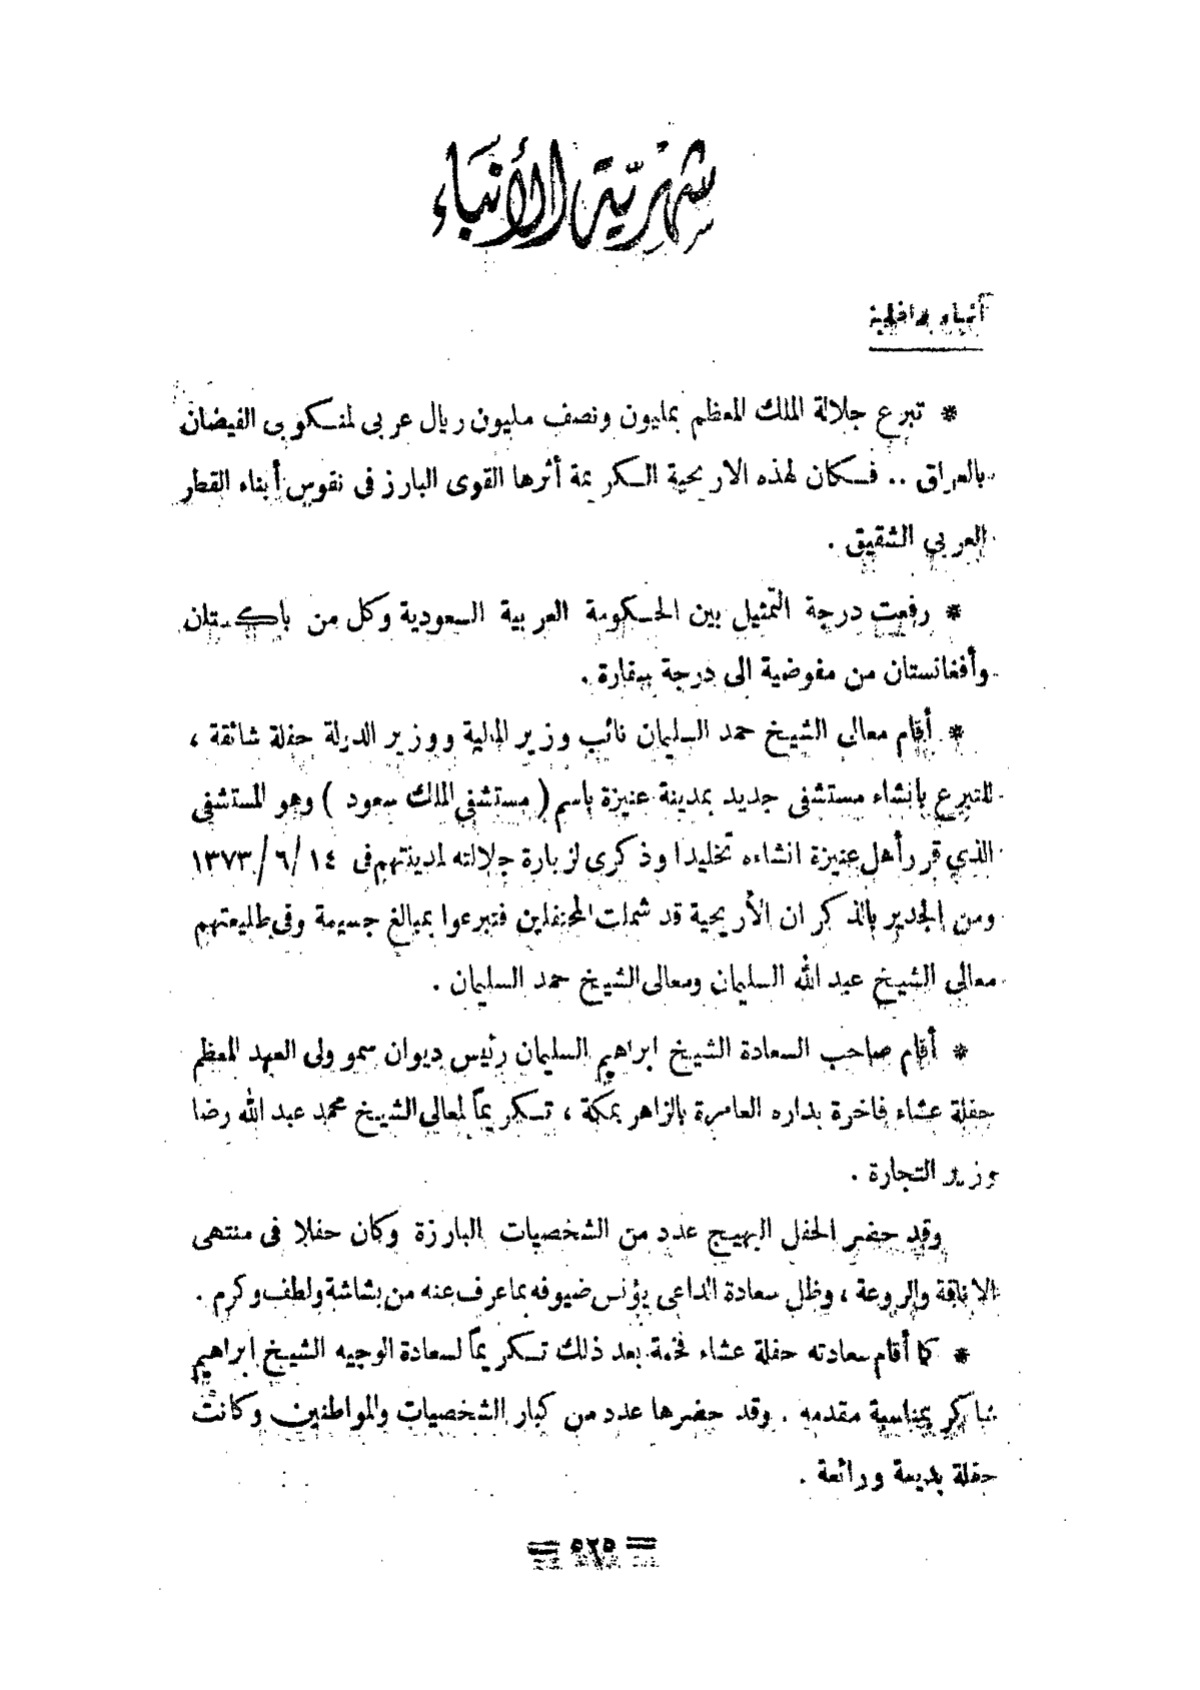 شهريّة الأنبَاء
أنباء داخلية
* تبرع جلالة الملك المعظم بمليون ونصف مليون ريال عربى لمنكوبى الفيضان
بالعراق .. فكان لهذه الاريحية الكريمة أثرها القوى البارز فى نفوس أبناء القطر
العربي الشقيق .
* رفعت درجة التمثيل بين الحكومة العربية السعودية وكل من باكستان
وأفغانستان من مفوضية الى درجة سفارة .
* أقام معالى الشيخ حمد السليمان نائب وزير المالية ووزير الدولة حفلة شائقة ،
للتبرع بإنشاء مستشفى جديد بمدينة عنيزة باسم ( مستشفى الملك سعود ) وهو المستشفى
الذي قرر أهل عنيزة انشاءه تخليدا وذكرى لزيارة جلالته لمدينتهم فى ١٤ /٦ /١٣٧٣
ومن الجدير بالذكر ان الأريحية قد شملت المحتفلين فتبرعوا بمبالغ جسيمة وفى طليعتهم
معالى الشيخ عبد الله السليمان ومعالى الشيخ حمد السليمان .
* أقام صاحب السعادة الشيخ ابراهيم السليمان رئيس ديوان سمو ولى العهد المعظم
حفلة عشاء فاخرة بداره العامرة بالزاهر بمكة ، تكريماً لمعالى الشيخ محمد عبد الله رضا
وزير التجارة .
وقد حضر الحفل البهيج عدد من الشخصيات البارزة وكان حفلا فى منتهى
الاناقة والروعة ، وظل سعادة الداعى يؤنس ضيوفه بما عرف عنه من بشاشة ولطف وكرم .
* كما أقام سعادته حفلة عشاء فخمة بعد ذلك تكريماً لسعادة الوجيه الشيخ ابراهيم
شاكر بمناسبة مقدمه . وقد حضرها عدد من كبار الشخصيات والمواطنين وكانت
حفلة بديعة ورائعة .
= ٥٢٥ =